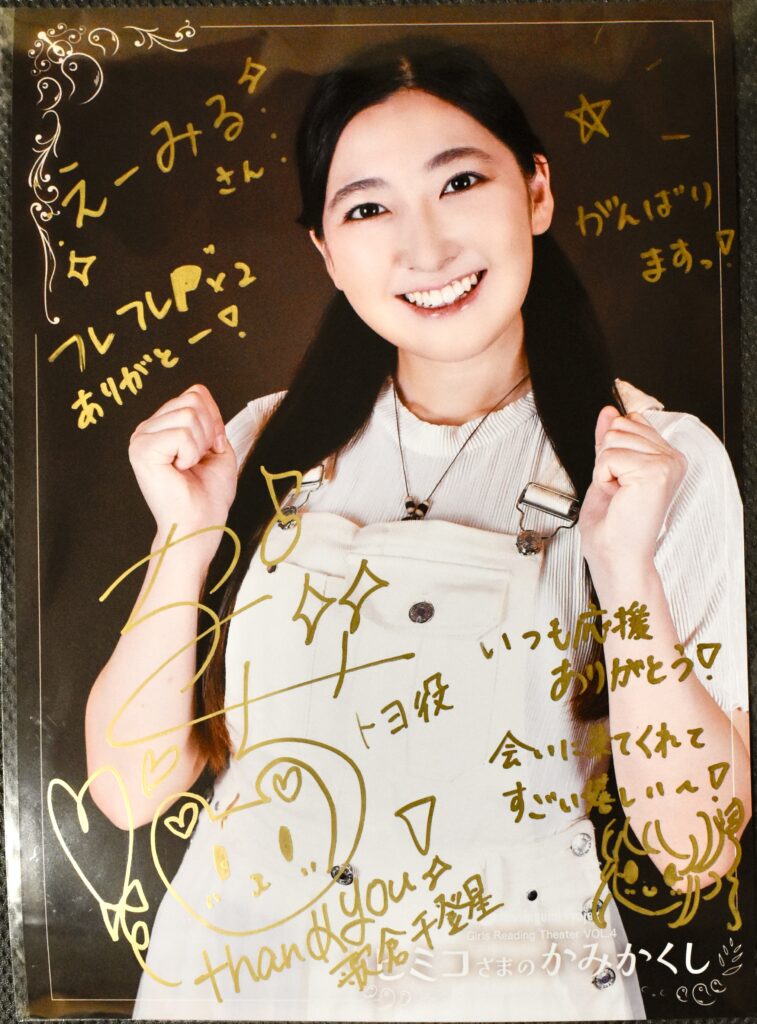 えーみる
さん
がんばり
ますっ!
フレフレP×2
ありがとー!
いつも応援
ありがとう!
トヨ役
会いに来てくれて
すごい嬉しい～!
thank you
千登星
Girls Reading Theater VOL.4
ヒミコさまのかみかくし